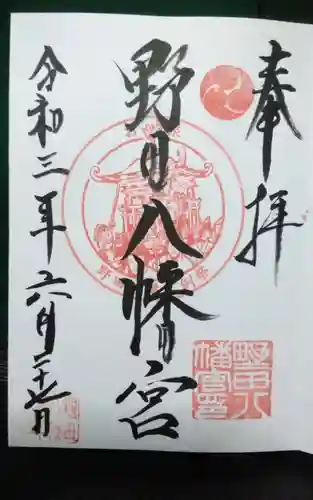 奉拝
野田八幡宮
令和三年六月二十七日
野田八
幡宮印